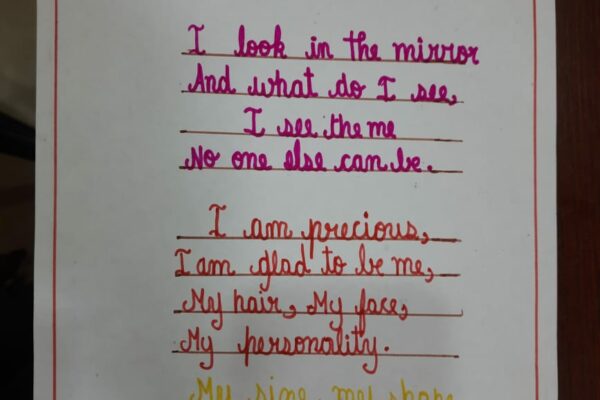 I look in the mirror
And what do I see,
I see the me
No one else can be.
I am precious,
I am glad to be me,
My hair, My face,
My personality.
My size, my shape